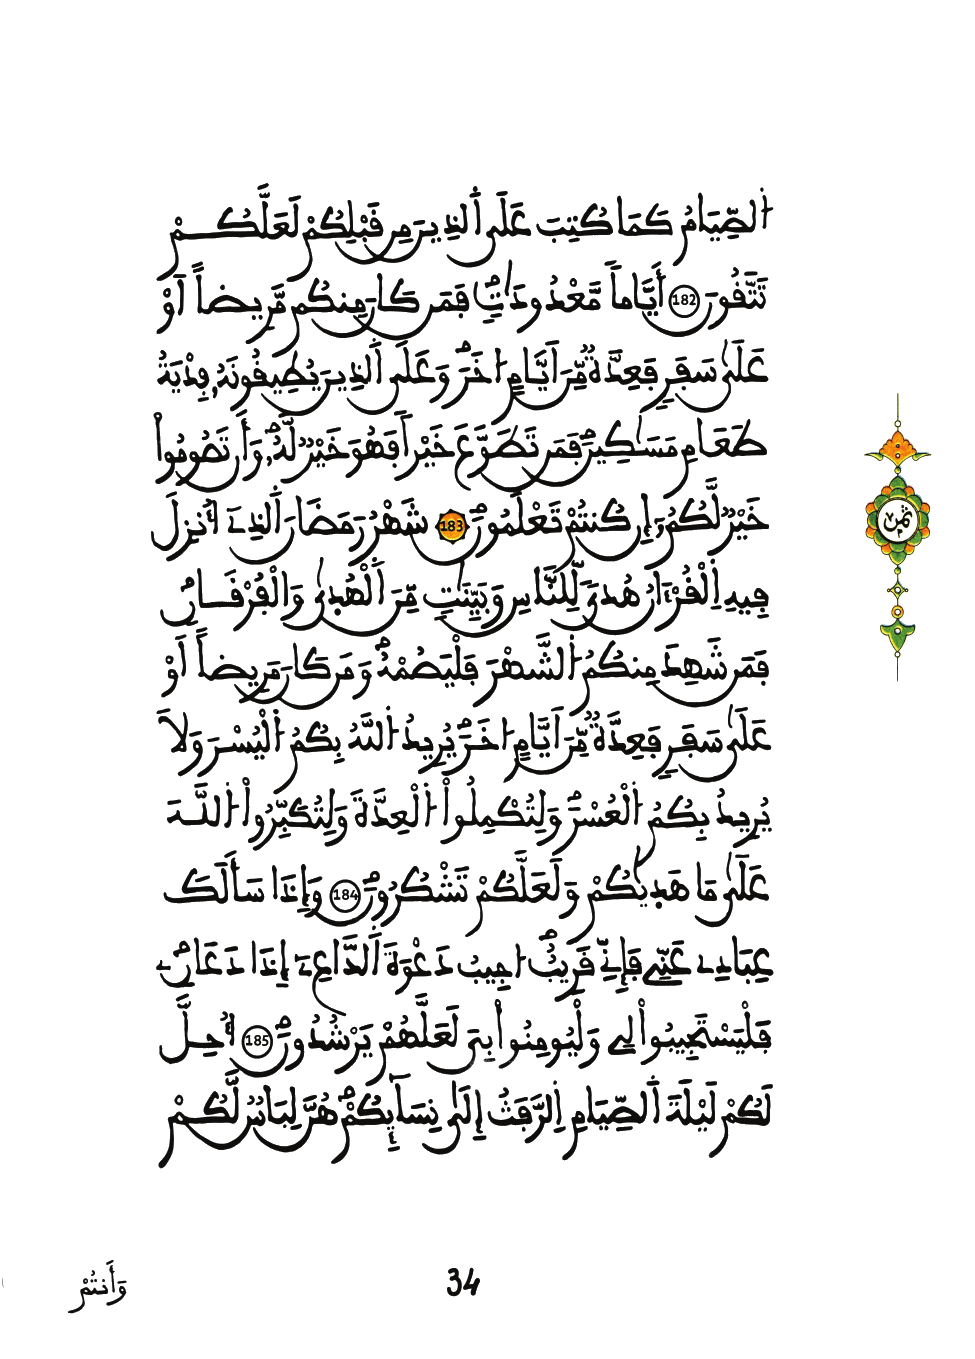 اَ۬لصِّيَامُ كَمَا كُتِبَ عَلَى اَ۬لذِينَ مِن قَبْلِكُمْ لَعَلَّكُمْ
تَتَّقُونَ 182 أَيَّاماٗ مَّعْدُودَٰتٖۖ فَمَن كَانَ مِنكُم مَّرِيضاً أَوْ
عَلَىٰ سَفَرٖ فَعِدَّةٞ مِّنَ اَيَّامٍ ا۟خَرَۖ وَعَلَى اَ۬لذِينَ يُطِيقُونَهُۥ فِدْيَةُ
طَعَامِ مَسَٰكِينَۖ فَمَن تَطَوَّعَ خَيْراٗ فَهُوَ خَيْرٞ لَّهُۥۖ وَأَن تَصُومُواْ
خَيْرٞ لَّكُمُۥٓ إِن كُنتُمْ تَعْلَمُونَۖ 183 شَهْرُ رَمَضَانَ اَ۬لذِےٓ أُنزِلَ
فِيهِ اِ۬لْقُرْءَانُ هُديٗ لِّلنَّاسِ وَبَيِّنَٰتٖ مِّنَ اَ۬لْهُد۪يٰ وَالْفُرْقَانِۖ
فَمَن شَهِدَ مِنكُمُ اُ۬لشَّهْرَ فَلْيَصُمْهُۖ وَمَن كَانَ مَرِيضاً أَوْ
عَلَىٰ سَفَرٖ فَعِدَّةٞ مِّنَ اَيَّامٍ ا۟خَرَۖ يُرِيدُ اُ۬للَّهُ بِكُمُ اُ۬لْيُسْرَ وَلَا
يُرِيدُ بِكُمُ اُ۬لْعُسْرَۖ وَلِتُكْمِلُواْ اُ۬لْعِدَّةَ وَلِتُكَبِّرُواْ اُ۬للَّهَ
عَلَىٰ مَا هَد۪يٰكُمْ وَلَعَلَّكُمْ تَشْكُرُونَۖ 184 وَإِذَا سَأَلَكَ
عِبَادِے عَنِّے فَإِنِّے قَرِيبٌۖ ا۟جِيبُ دَعْوَةَ اَ۬لدَّاعِۦٓ إِذَا دَعَانِۦۖ
فَلْيَسْتَجِيبُواْ لِے وَلْيُومِنُواْ بِيَ لَعَلَّهُمْ يَرْشُدُونَۖ 185 أُحِلَّ
لَكُمْ لَيْلَةَ اَ۬لصِّيَامِ اِ۬لرَّفَثُ إِلَىٰ نِسَآئِكُمْۖ هُنَّ لِبَاسٞ لَّكُمْ
ثمن
وَأَنتُمْ
34